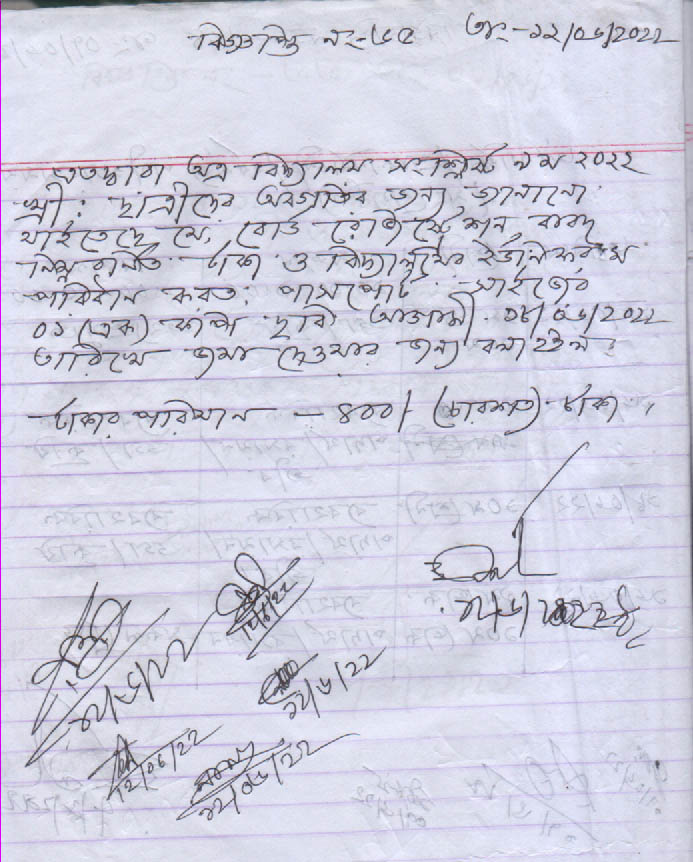 বিজ্ঞপ্তি নং-৬৫ তাং-১২/০৬/2022
এতদ্বারা অত্র বিদ্যালয় সংশ্লিষ্ট ৮ম ২০২২
খ্রী: ছাত্রীদের অবগতির জন্য জানানো
যাইতেছে যে, বোর্ড রেজিষ্ট্রেশন বাবদ
নিম্ন বর্নিত টাকা ও বিদ্যালয়ের ইউনিফরম
পরিধান করত: পাসপোর্ট সাইজের
০১ (এক) কপি ছবি আগামী ১৮/০৬/2022
তারিখে জমা দেওয়ার জন্য বলা হইল।
টাকার পরিমান - ৪০০/- (চারশত) টাকা।
১২/৬/২২
12/6/22
১২/৬/২২
12/06/22
১২/০৬/২২